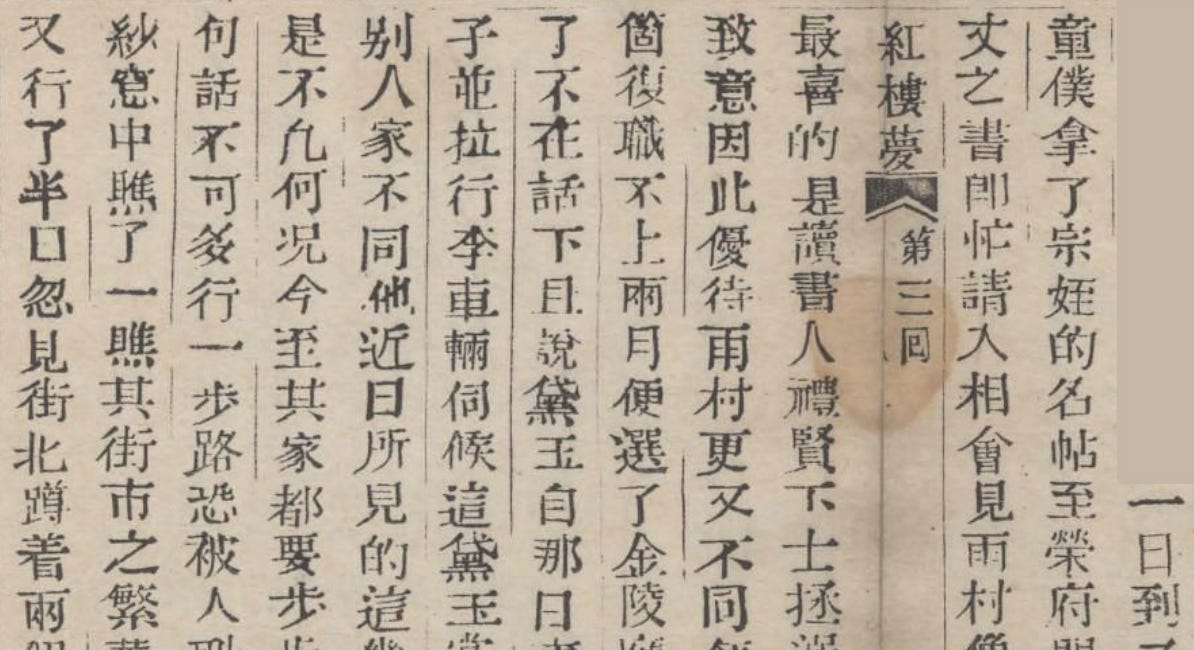 一日到
童僕拿了宗姪的名帖至榮府
丈之書即忙請入相會見雨村
紅樓夢 第三回
最喜的是讀書人禮賢下士拯
致意因此優待雨村更又不同
箇復職不上兩月便選了金陵
了不在話下且說黛玉自那日
子並拉行李車輛伺候這黛玉
别人家不同他近日所見的這
是不凢何况今至其家都要步
何話不可多行一步路恐被人
紗窓中瞧了一瞧其街市之繁
又行了半日忽見街北蹲着兩